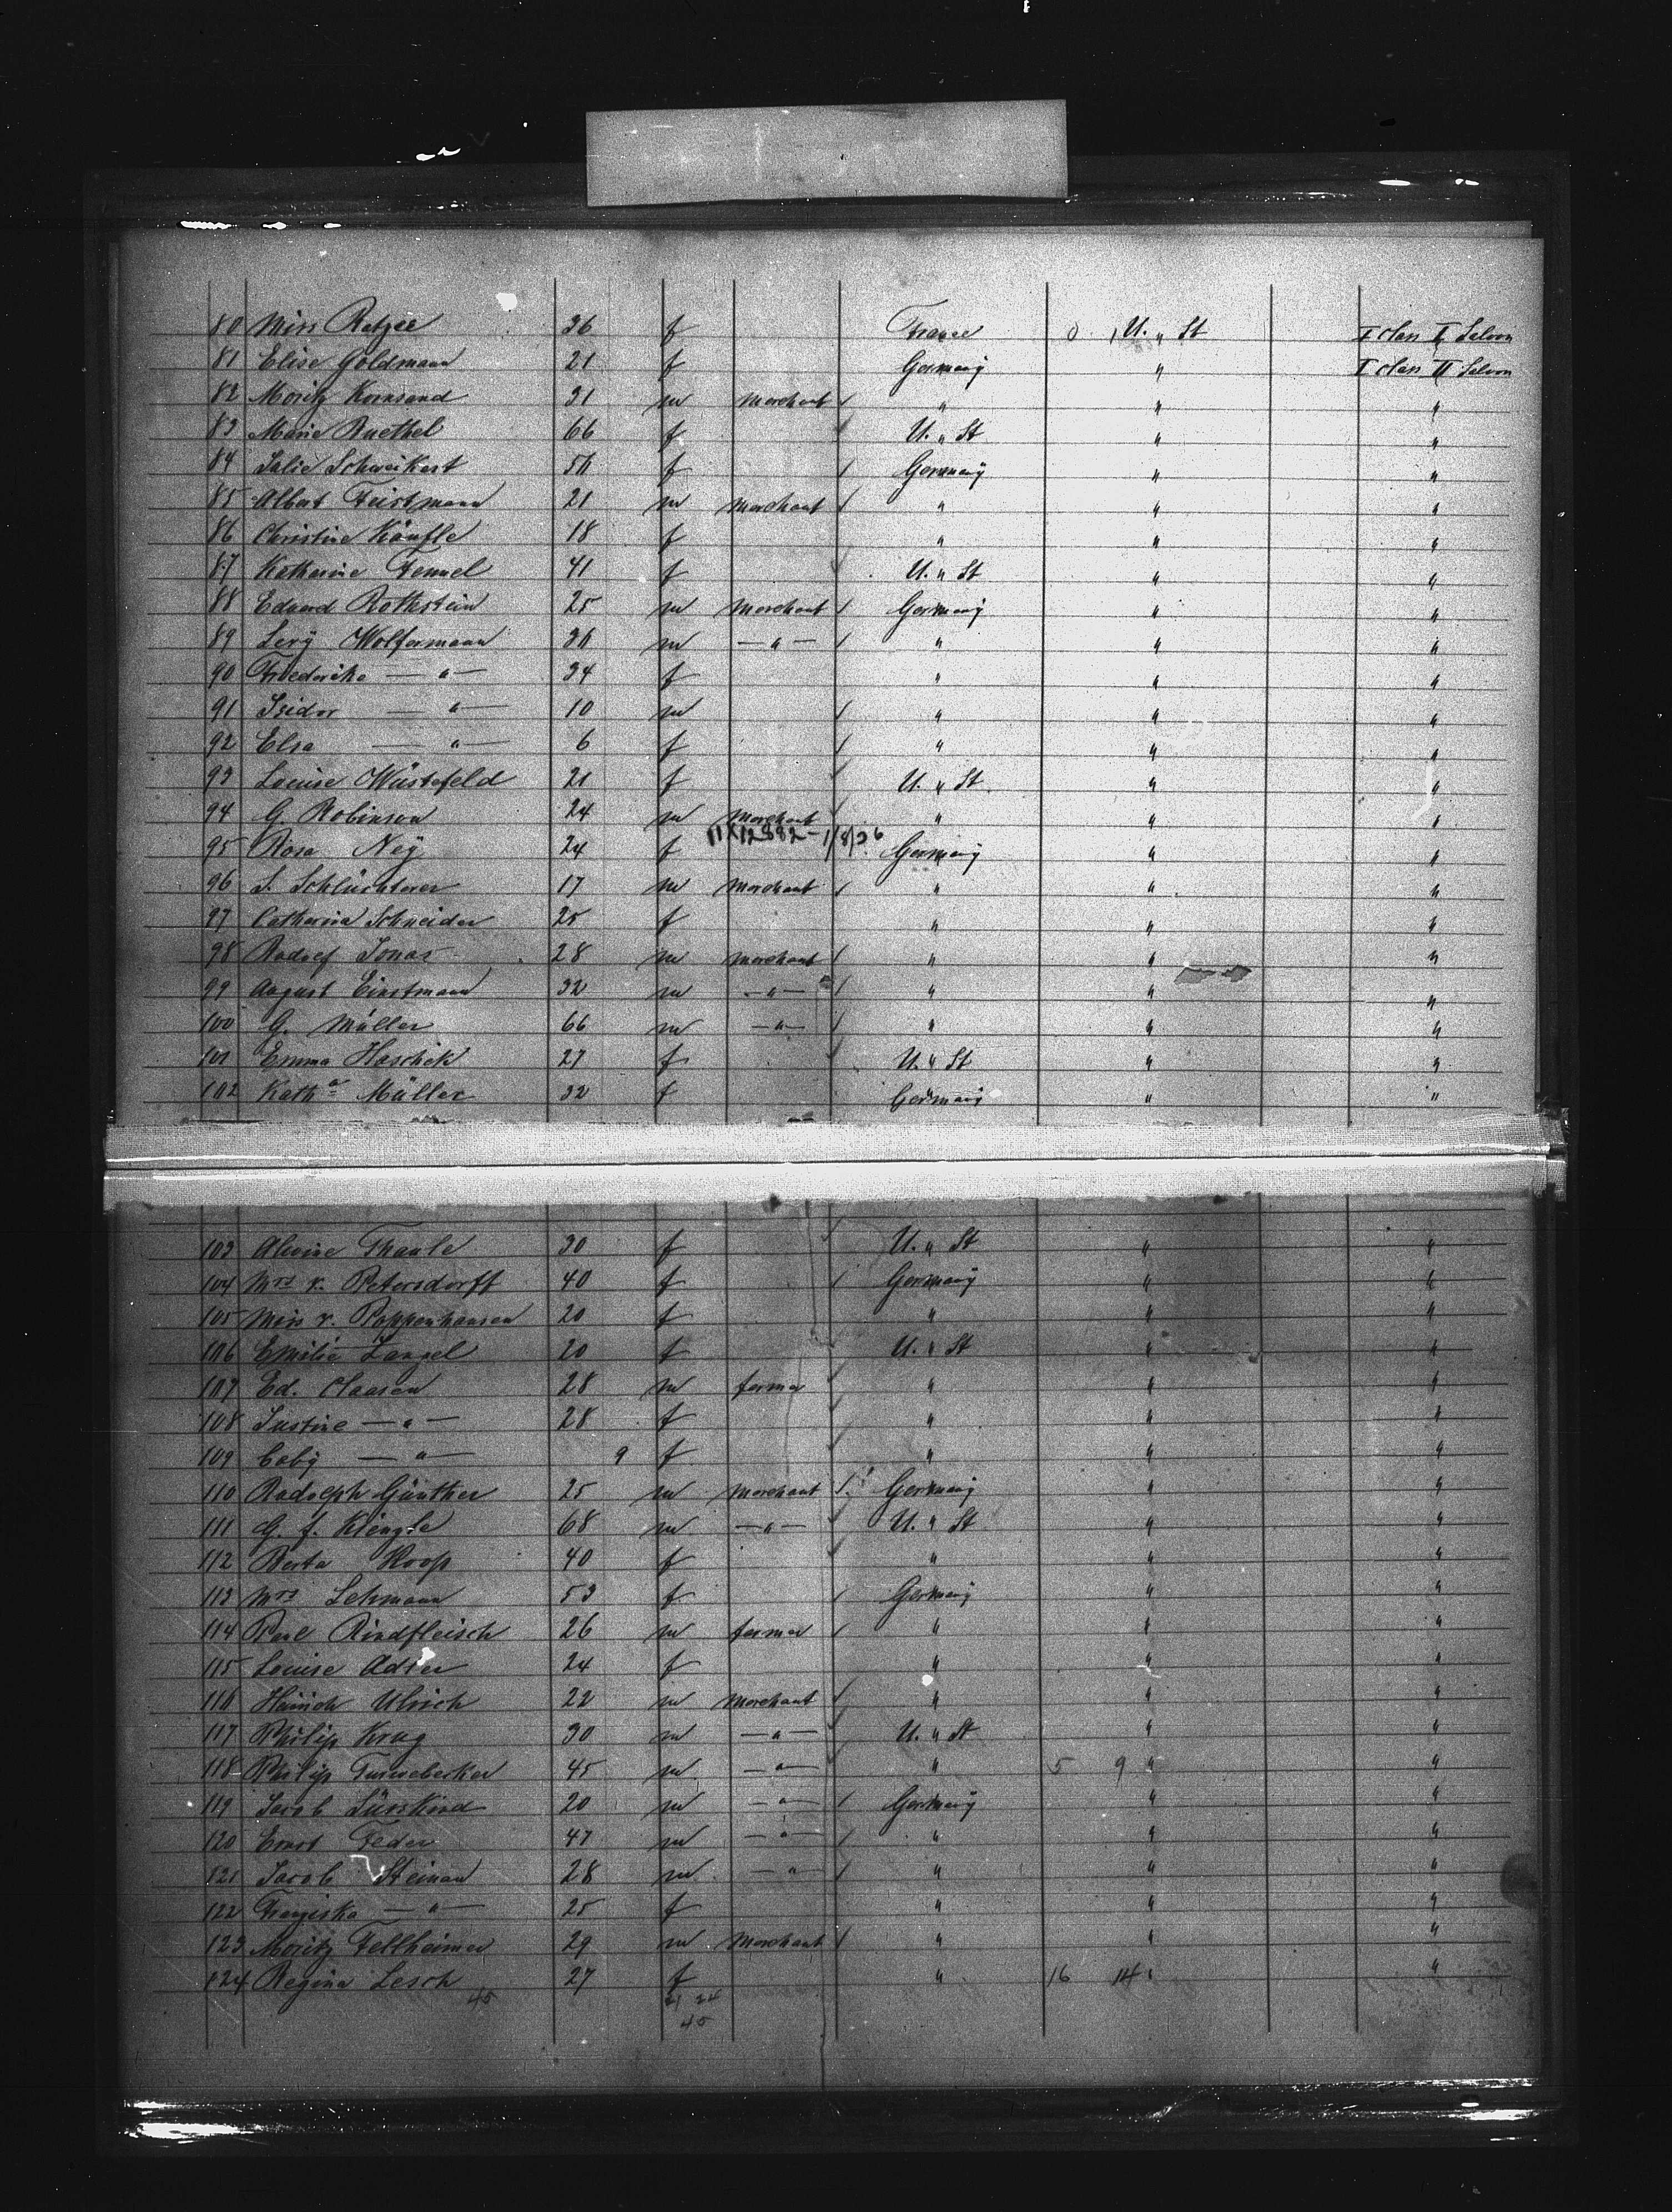 80 Miss Retzer 26 f France 0 U. " St I class I Saloon
81 Elise Goldmann 21 f Germany " I class II Saloon
82 Moritz Kornsand 31 m merchant / " " "
83 Marie Ruethel 66 f U. " St " "
84 Julie Schweikert 56 f / Germany " "
85 Albert Feistmann 21 m merchant / " " "
86 Christine Käufle 18 f " " "
87 Katharine Fennel 41 f U. " St " "
88 Eduard Rothstein 25 m merchant / Germany " "
89 Levy Wolfermann 36 m — " — / " " "
90 Frederike — " — 34 f " " "
91 Isidor — " — 10 m / " " "
92 Elsa — " — 6 f / " " "
93 Louise Wüstefeld 21 f U. " St " "
94 G. Robinson 24 m merchant " " "
11 X 12882 - 1/8/36
95 Rosa Ney 24 f Germany " "
96 S. Schlüchterer 17 m merchant / " " "
97 Catharina Schneider 25 f " " "
98 Rudolf Jonas 28 m merchant / " " "
99 August Einstmann 32 m — " — / " " "
100 G. Müller 66 m — " — / " " "
101 Emma Haschek 27 f U. " St " "
102 Katha Müller 32 f Germany " "
103 Alwine Thaule 30 f U. " St " "
104 Mrs v. Petersdorff 40 f / Germany " "
105 Miss v. Pappenhausen 20 f " " "
106 Emilie Langel 20 f U. " St " "
107 Ed. Claasen 28 m farmer " " "
108 Justine — " — 28 f " " "
109 Coby — " — 9 f " " "
110 Rudolph Günther 25 m merchant / Germany " "
111 G. f. Kienzle 68 m — " — U. " St " "
112 Berta Hoop 40 f " " "
113 Mrs Lehmann 53 f / Germany " "
114 Paul Rindfleisch 26 m farmer / " " "
115 Louise Adler 24 f " " "
116 Heinrich Ulrich 22 m merchant / " " "
117 Philip Krug 30 m — " — U. " St " "
118 Philip 45 m — " — " 5 9 " "
119 Jacob Süsskind 20 m — " — / Germany " "
120 Ernst Feder 47 m — " — / " " "
121 Jacob Steinau 28 m — " — / " " "
122 Franziska — " — 25 f " " "
123 Moritz Fellheimer 29 m merchant / " " "
124 Regina Lesch 27 f " 16 14 " "
45 21 24
45